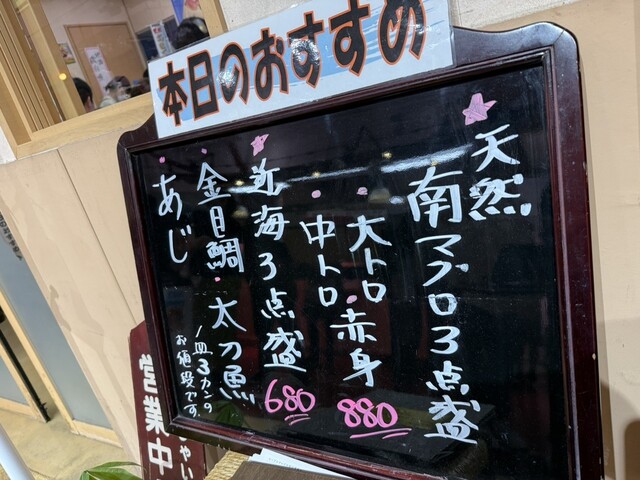 本日のおすすめ
天然
南マグロ3点盛
大トロ・赤身
880
・中トロ
近海3点盛
680
・金目鯛・太刀魚
・あじ
1皿3カンの
お値段です。
営業中